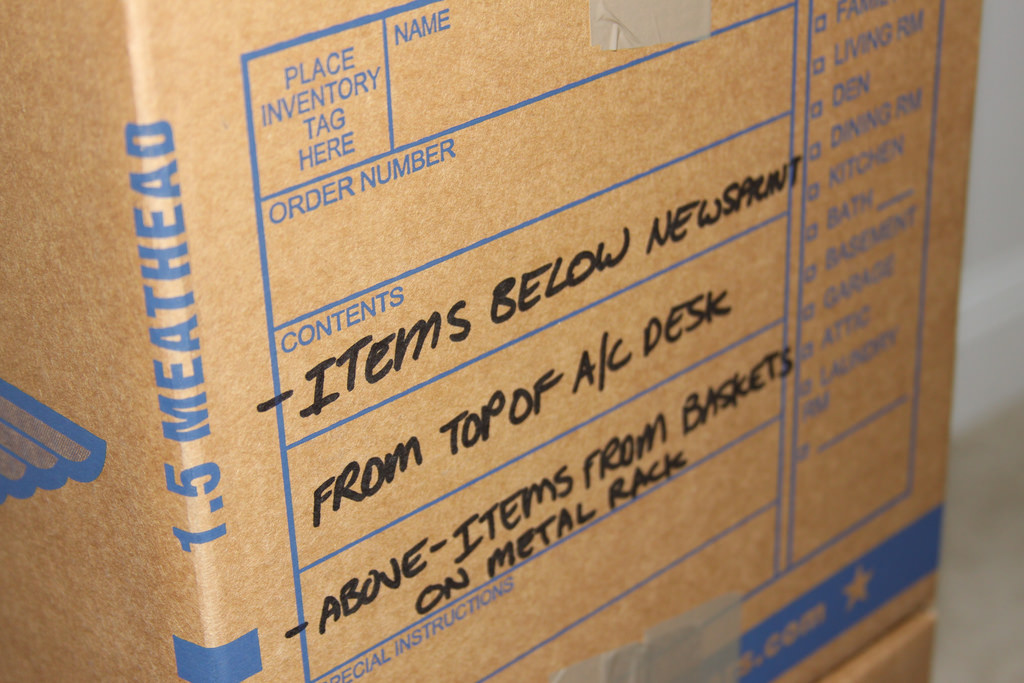 1.5 MEATHEAD
PLACE
INVENTORY
TAG
HERE
NAME
ORDER NUMBER
CONTENTS
- ITEMS BELOW NEWSPRINT
FROM TOP OF A/C DESK
- ABOVE - ITEMS FROM BASKETS
ON METAL RACK
SPECIAL INSTRUCTIONS
LIVING RM
DEN
DINING RM
KITCHEN
BATH
BASEMENT
GARAGE
ATTIC
LAUNDRY
RM
.com